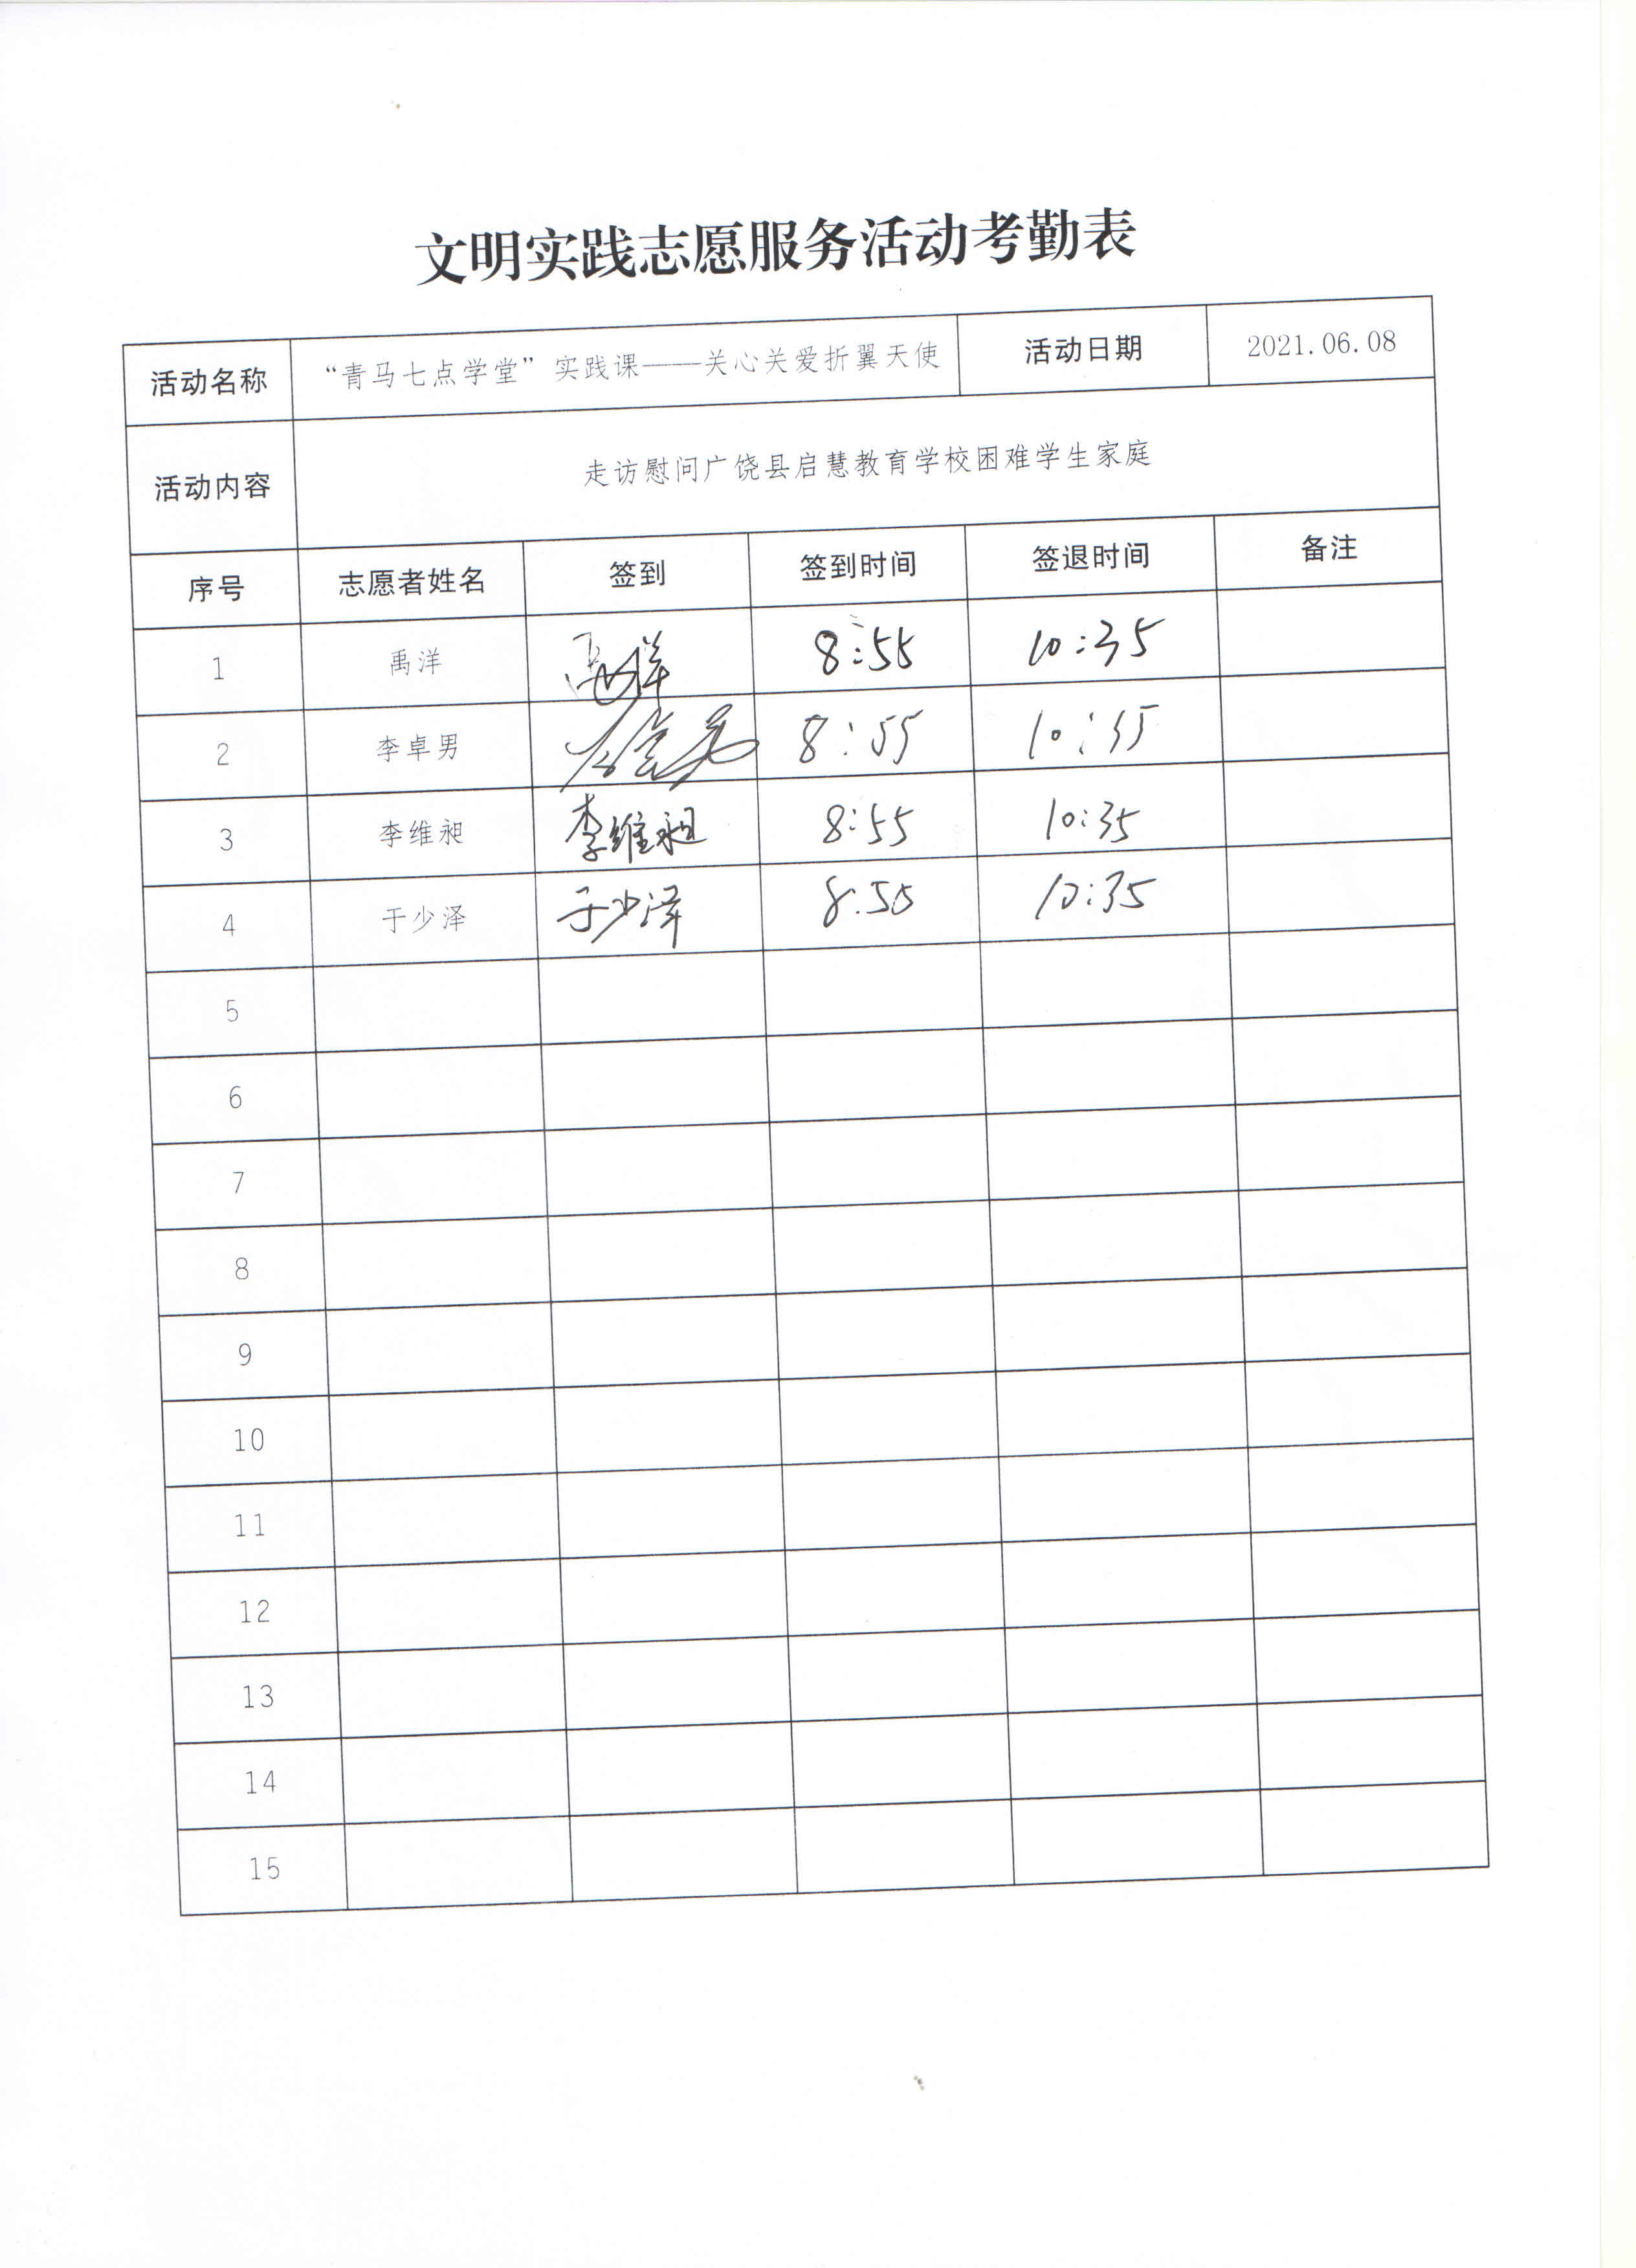 文明实践志愿服务活动考勤表
活动名称 “青马七点学堂”实践课——关心关爱折翼天使 活动日期 2021.06.08
活动内容 走访慰问广饶县启慧教育学校困难学生家庭
序号 志愿者姓名 签到 签到时间 签退时间 备注
1 禹洋 禹洋 8:55 10:35
2 李卓男 8:55 10:35
3 李维昶 李维昶 8:55 10:35
4 于少泽 于少泽 8:55 10:35
5
6
7
8
9
10
11
12
13
14
15